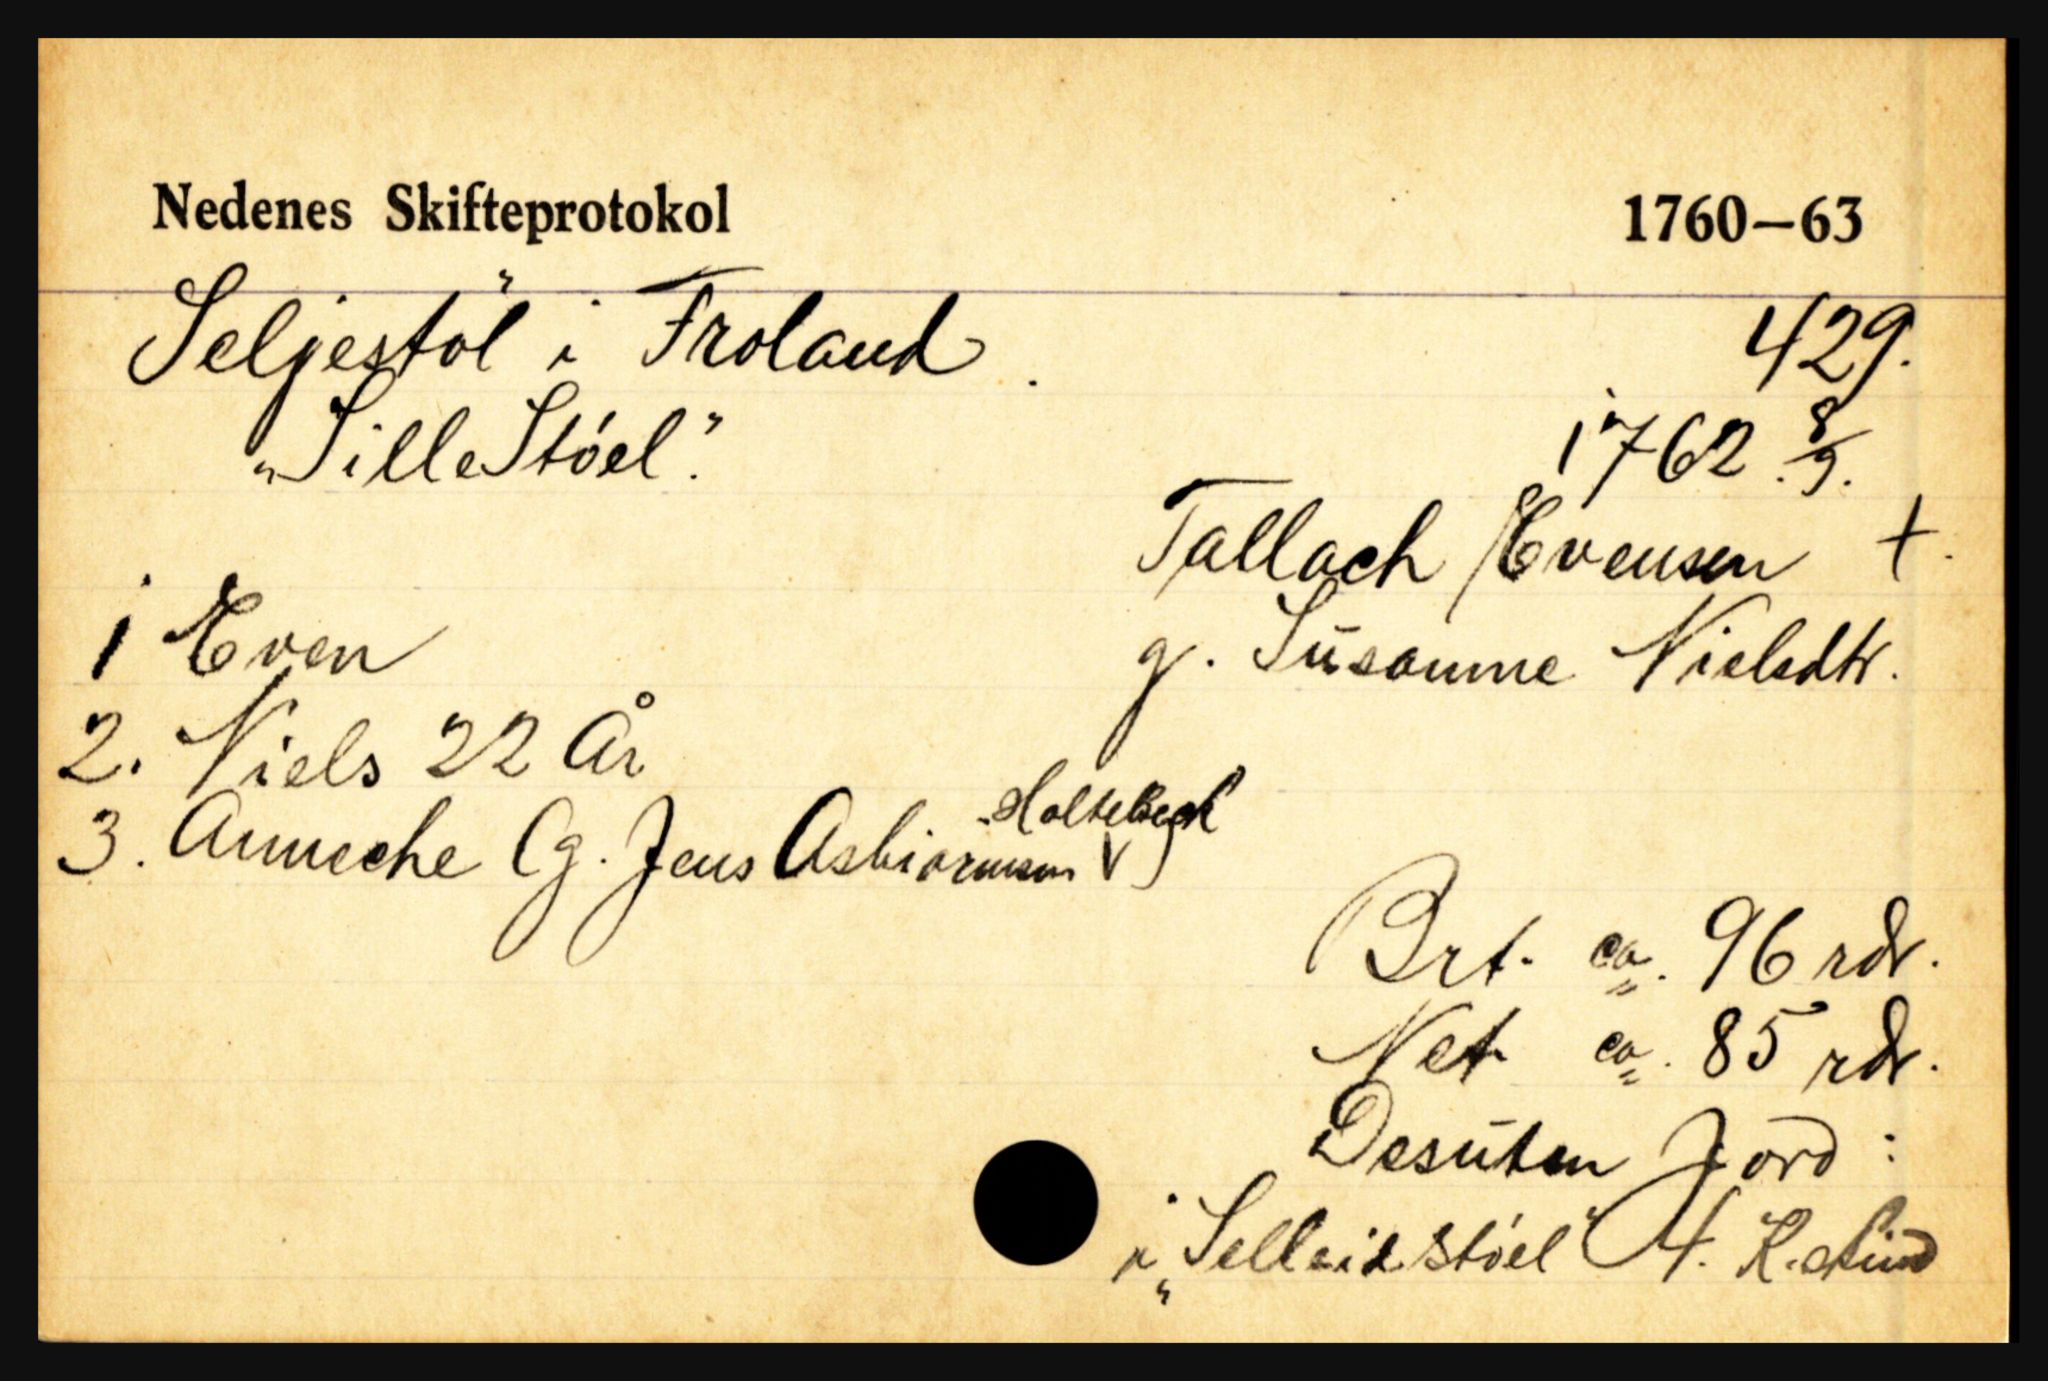 Nedenes Skifteprotokol 1760–63
Seljestöl i Froland. 429.
"SilleStóel". 1762. 8/9.
Tallach Evensen +.
g. Susanne Nielsdtr.
1 Even
2. Niels 22 År
3. Anneche (g. Jens Asbiørnsen Holtebech)
Brt. ca. 96 rdr.
Net ca. 85 rdr.
Desuten Jord:
i "Selleidstóel"